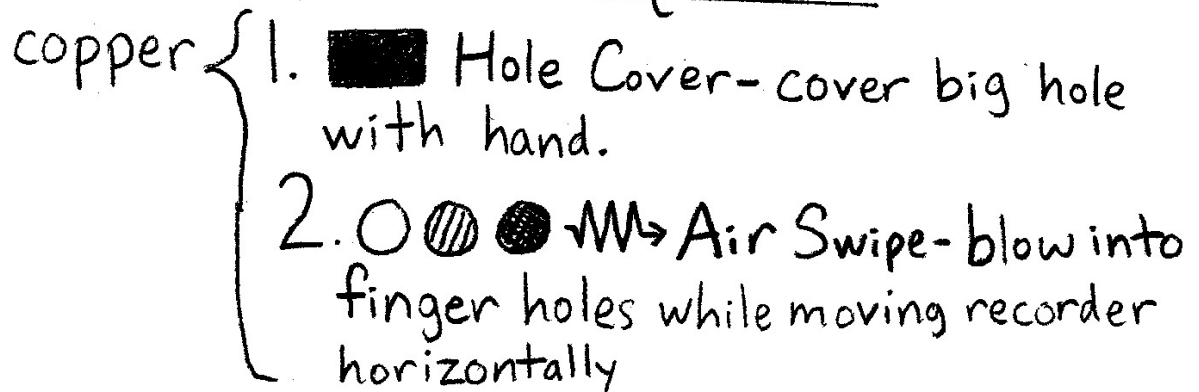 copper
1. Hole Cover - cover big hole
with hand.
2. Air Swipe - blow into
finger holes while moving recorder
horizontally